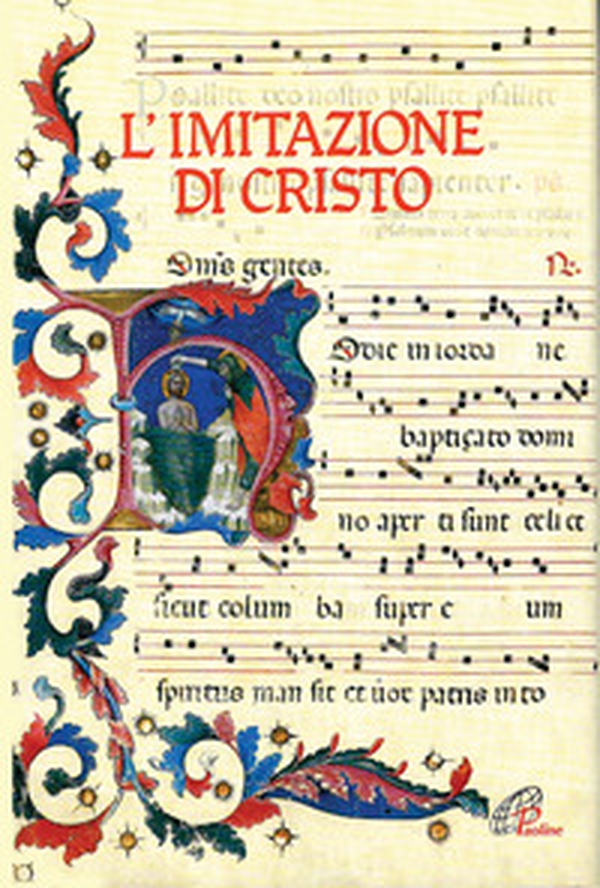 Psallite deo nostro psallite psallite
L'IMITAZIONE
DI CRISTO
sapienter.
Om̅s gentes.
Odie in iorda ne
baptiçato domi
no aper ti sunt celi et
sicut colum ba super e um
spiritus man sit et uox patris into
Paoline